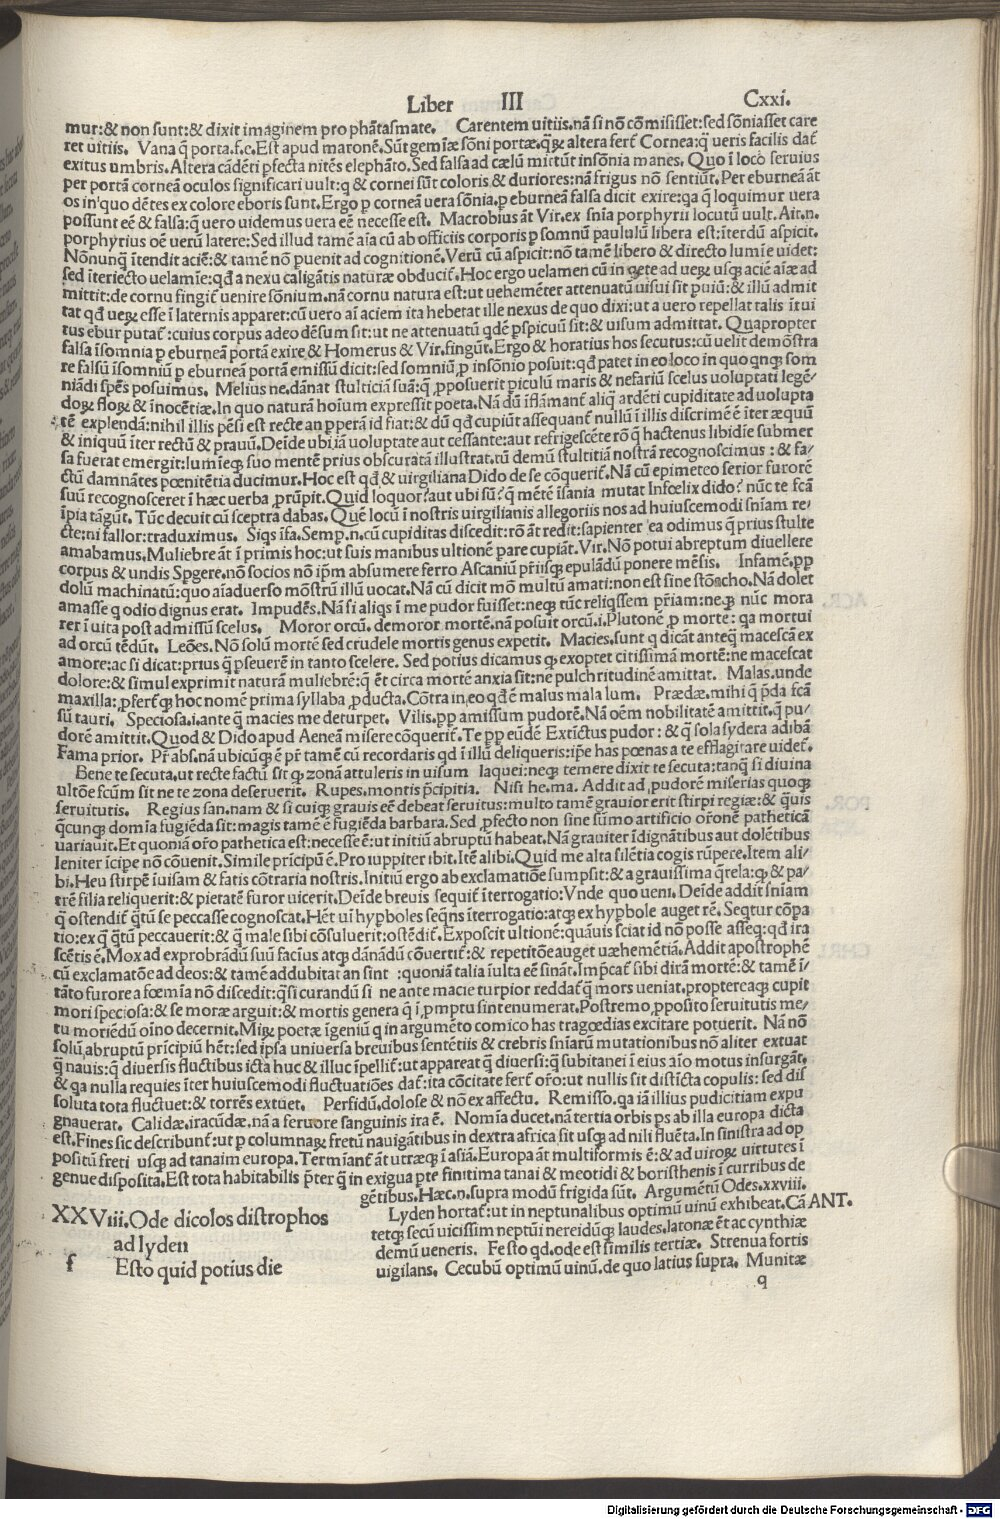 Liber III Cxxi.
mur:& non sunt:& dixit imaginem pro phãtasmate. Carentem uitiis.nã si nõ cõmisisset:sed sõniasset care
ret uitiis. Vana q̃ porta.f.e.Est apud maronẽ.Sũt gemĩæ sõni portæ.q̃ꝝ altera fert̃ Cornea:q̃ ueris facilis dat̃
exitus umbris.Altera cãdẽti ꝑfecta nitẽs elephãto.Sed falsa ad cælũ mittũt insõnia manes. Quo ĩ loco seruius
per portã corneã oculos significari uult:q & cornei sũt coloris & duriores:nã frigus nõ sentiũt.Per eburneã ãt
os in quo dẽtes ex colore eboris sunt.Ergo ꝑ corneã uera sõnia,ꝑ eburneã falsa dicit exire:qa q̃ loquimur uera
possunt eẽ & falsa:q̃ uero uidemus uera eẽ necesse est. Macrobius ãt Vir.ex snĩa porphyrii locutũ uult. Ait.n.
porphyrius oẽ uerũ latere:Sed illud tamẽ aĩa cũ ab officiis corporis ꝑ somnũ paululũ libera est:ĩterdũ aspicit.
Nõnunq̃ ĩtendit aciẽ:& tamẽ nõ puenit ad cognitionẽ.Verũ cũ aspicit:nõ tamẽ libero & directo lumĩe uidet:
sed ĩteriecto uelamĩe:qđ a nexu caligãtis naturæ obducit̃.Hoc ergo uelamen cũ in qete ad ueꝝ usqꝫ aciẽ aĩæ ad
mittit:de cornu fingit̃ uenire sõnium.nã cornu natura est:ut uehemẽter attenuatũ uisui sit puiũ:& illũ admit
tat qđ ueꝝ esse ĩ laternis apparet:cũ uero aĩ aciem ita hebetat ille nexus de quo dixi:ut a uero repellat talis ĩtui
tus ebur putat̃:cuius corpus adeo dẽsum sit:ut ne attenuatũ qdẽ ꝑspicuũ sit:& uisum admittat. Quapropter
falsa ĩsomnia ꝑ eburneã portã exire & Homerus & Vir.fingũt.Ergo & horatius hos secutus:cũ uelit demõstra
re falsũ ĩsomniũ ꝑ eburneã portã emissũ dicit:sed somniũ,ꝑ insõnio posuit:qđ patet in eo loco in quo qnqꝫ som
niãdi spẽs posuimus. Melius ne.dãnat stulticiã suã:q̃ ꝓposuerit piculũ maris & nefariũ scelus uoluptati legẽ/
doꝝ floꝝ & ĩnocẽtiæ.In quo naturã hoĩum expressit poeta.Nã dũ ĩflãmant̃ aliq̃ ardẽti cupiditate ad uolupta
tẽ explendã:nihil illis pẽsi est recte an pperã id fiat:& dũ qđ cupiũt assequant̃ nullũ ĩ illis discrimẽ ẽ ĩter æquũ
& iniquũ ĩter rectũ & prauũ.Deĩde ubi iã uoluptate aut cessante:aut refrigescẽte rõ q̃ hactenus libidĩe submer
sa fuerat emergit:lumĩeqꝫ suo mentẽ prius obscuratã illustrat.tũ demũ stultitiã nostrã recognoscimus : & fa/
ctũ damnãtes pœnitẽtia ducimur.Hoc est qđ & uirgiliana Dido de se cõquerit̃.Nã cũ epimeteo serior furorẽ
suũ recognosceret ĩ hæc uerba ꝓrũpit.Quid loquor?aut ubi sũ?q̃ mẽtẽ ĩsania mutat Infœlix dido? nũc te fcã
ĩpia tãgũt. Tũc decuit cũ sceptra dabas. Quẽ locũ ĩ nostris uirgilianis allegoriis nos ad huiuscemodi snĩam re/
cte:ni fallor:traduximus. Siqs ĩfa.Semp.n.cũ cupiditas discedit:rõ ãt redit:sapienter ea odimus q̃ prius stulte
amabamus.Muliebre ãt ĩ primis hoc:ut suis manibus ultionẽ pare cupiãt.Vir.Nõ potui abreptum diuellere
corpus & undis Spgere.nõ socios nõ ip̃m absumere ferro Ascaniũ pr̃iisqꝫ epulãdũ ponere mẽsis. Infamẽ.pp
dolũ machinatũ:quo aĩaduerso mõstrũ illũ uocat.Nã cũ dicit mõ multũ amati:non est sine stõacho.Nã dolet
amasse q odio dignus erat. Impudẽs.Nã si aliqs ĩ me pudor fuisset:neqꝫ tũc reliqssem pr̃iam:neqꝫ nũc mora
rer ĩ uita post admissũ scelus. Moror orcũ.demoror mortẽ.nã posuit orcũ.i.Plutonẽ ꝓ morte: qa mortui
ad orcũ tẽdũt. Leões.Nõ solũ mortẽ sed crudele mortis genus expetit. Macies.sunt q dicãt anteq̃ macescã ex
amore:ac si dicat:prius q̃ pseuerẽ in tanto scelere. Sed potius dicamus qꝫ exoptet citissimã mortẽ:ne macescat
dolore:& simul exprimit naturã muliebrẽ:q̃ ẽt circa mortẽ anxia sit:ne pulchritudinẽ amittat. Malas.unde
maxilla:ꝓfert̃qꝫ hoc nomẽ prima syllaba ꝓducta.Cõtra in eo qđ ẽ malus mala lum. Prædæ.mihi q̃ p̃da fcã
sũ tauri. Speciosa.i.ante q̃ macies me deturpet. Vilis.pp amissum pudorẽ.Nã oẽm nobilitatẽ amittit.q̃ pu/
dorẽ amittit.Quod & Dido apud Aeneã misere cõquerit̃.Te pp eũdẽ Extĩctus pudor : & q̃ sola sydera adibã
Fama prior. Pr̃ abs.nã ubicũqꝫ ẽ pr̃ tamẽ cũ recordaris qd ĩ illũ deliqueris:ip̃e has pœnas a te efflagitare uidet̃.
Bene te secuta.ut recte factũ sit qꝫ zonã attuleris in uisum laquei:neqꝫ temere dixit te secuta:tanq̃ si diuina
ultõe fcũm sit ne te zona deseruerit. Rupes.montis p̃cipitia. Nisi he.ma. Addit ad pudorẽ miserias quoqꝫ
seruitutis. Regius san.nam & si cuiqꝫ grauis eẽ debeat seruitus:multo tamẽ grauior erit stirpi regiæ:& q̃uis
q̃cunqꝫ domĩa fugiẽda sit:magis tamẽ ẽ fugiẽda barbara.Sed ꝓfecto non sine sũmo artificio or̃onẽ patheticã
uariauit.Et quoniã or̃o pathetica est:necesse ẽ:ut initiũ abruptũ habeat.Nã grauiter ĩdignãtibus aut dolẽtibus
leniter ĩcipe nõ cõuenit.Simile prĩcipiũ ẽ.Pro iuppiter ibit.Itẽ alibi.Quid me alta silẽtia cogis rũpere.Item ali/
bi.Heu stirpẽ ĩuisam & fatis cõtraria nostris.Initiũ ergo ab exclamatiõe sumpsit:& a grauissima q̃rela:qꝫ & pa/
trẽ filia reliquerit:& pietatẽ furor uicerit.Deĩde breuis sequit̃ ĩterrogatio:Vnde quo ueni.Deĩde addit snĩam
q̃ ostendit̃ q̃tũ se peccasse cognoscat.Hẽt uĩ hypboles seq̃ns ĩterrogatio:atqꝫ ex hypbole auget rẽ.Seqtur cõpa
tio:ex q̃ q̃tũ peccauerit:& q̃ male sibi cõsuluerit:ostẽdit̃.Exposcit ultionẽ:quãuis sciat id nõ posse asseq:qđ ira
scẽtis ẽ.Mox ad exprobrãdũ suũ facius atqꝫ dãnãdũ cõuertit̃:& repetitõe auget uæhemẽtiã.Addit apostrophẽ
cũ exclamatõe ad deos:& tamẽ addubitat an sint :quoniã talia iulta eẽ sinãt.Imp̃cat̃ sibi dirã mortẽ:& tamẽ ĩ/
tãto furore a fœmĩa nõ discedit:q̃si curandũ si ne ante macie turpior reddat̃ q̃ mors ueniat.proptereaqꝫ cupit
mori speciosa:& se moræ arguit:& mortis genera q̃ ĩ ꝓmptu sint enumerat.Postremo ꝓposito seruitutis me/
tu moriẽdũ oĩno decernit.Miꝝ poetæ ĩgeniũ q in argumẽto comico has tragœdias excitare potuerit. Nã nõ
solũ abruptũ prĩcipiũ hẽt:sed ipsa uniuersa breuibus sentẽtiis & crebris snĩarũ mutationibus nõ aliter extuat
q̃ nauis:q̃ diuersis fluctibus icta huc & illuc ĩpellit̃:ut appareat q̃ diuersi:q̃ subitanei ĩ eius aĩo motus insurgãt.
& qa nulla requies ĩter huiuscemodi fluctuatiões dat̃:ita cõcitate fert̃ or̃o:ut nullis sit distĩcta copulis: sed dis
soluta tota fluctuet:& torrẽs extuet. Perfidũ.dolose & nõ ex affectu. Remisso.qa iã illius pudicitiam expu
gnauerat. Calidæ.iracũdæ.nã a feruore sanguinis ira ẽ. Nomĩa ducet.nã tertia orbis ps ab illa europa dicta
est.Fines sic describunt̃:ut p columnaꝝ fretũ nauigãtibus in dextra africa sit usqꝫ ad nili fluẽta.In sinistra ad op
positũ freti usqꝫ ad tanaim europa.Termĩant̃ ãt utræqꝫ ĩ asiã.Europa ãt multiformis ẽ:& ad uiroꝝ uirtutes ĩ
genue disposita.Est tota habitabilis p̃ter q̃ in exigua pte finitima tanai & meotidi & boristhenis ĩ curribus de
gẽtibus.Hæc.n.supra modũ frigida sũt. Argumẽtũ Odes.xxviii.
XXViii.Ode dicolos distrophos
ad lyden
f Esto quid potius die
Lyden hortat̃:ut in neptunalibus optimũ uinũ exhibeat.Cã ANT.
tetqꝫ secũ uicissim neptũi nereidũqꝫ laudes.latonæ ẽt ac cynthiæ
demũ ueneris. Festo qd.ode est similis tertiæ. Strenua fortis
uigilans. Cecubũ optimũ uinũ.de quo latius supra. Munitæ
q
Digitalisierung gefördert durch die Deutsche Forschungsgemeinschaft - DFG